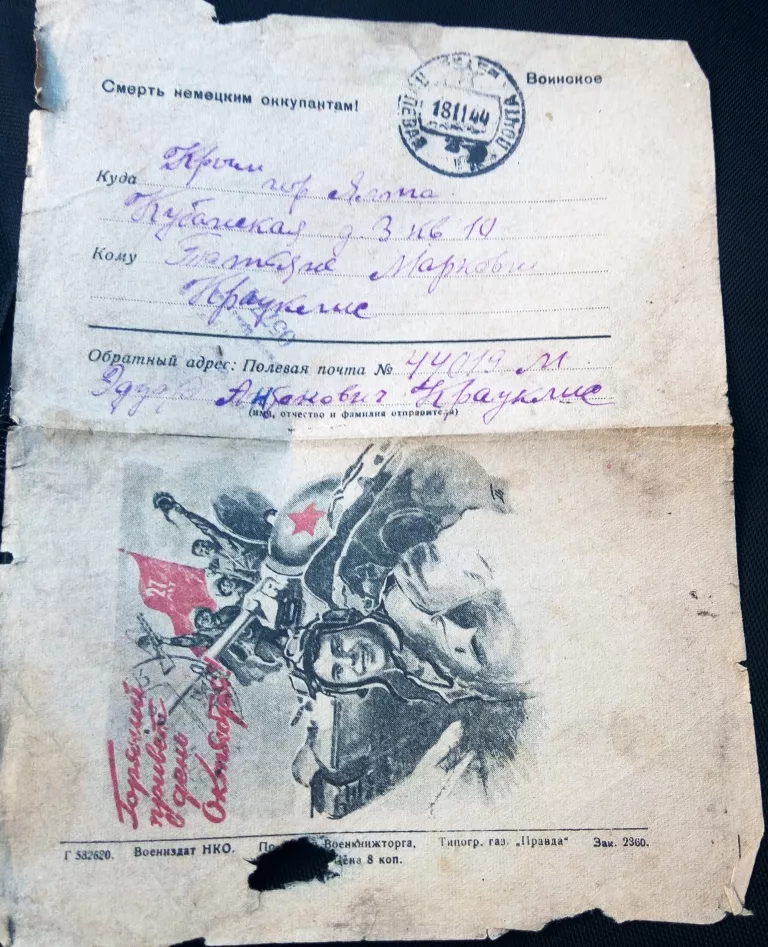 Воинское
Смерть немецким оккупантам!
ПОЛЕВАЯ ПОЧТА
181144
Куда Крым
гор Ялта
Кубанская д. 3 кв 10
Кому Татьяне Марковне
Крауклис
Обратный адрес: Полевая почта № 44019 М
Эдуард Антонович Крауклис
(имя, отчество и фамилия отправителя)
27 лет
Горячий
привет в
день
Октября!
Г 582620. Воениздат НКО. Военкнижторга. Типогр. газ. „Правда“ Зак. 2360.
Цена 8 коп.